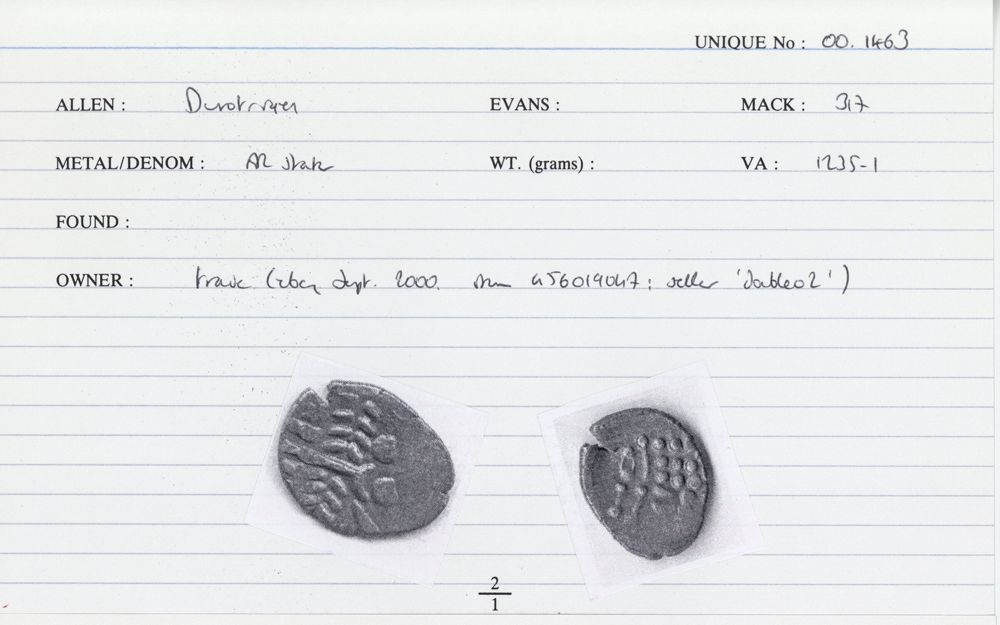 UNIQUE No : 00.1463
ALLEN : Durotriges EVANS : MACK : 317
METAL/DENOM : AR stater WT. (grams) : VA : 1235-1
FOUND :
OWNER : trade (ebay Sept. 2000. item 456019047; seller 'dableo2')
2
1